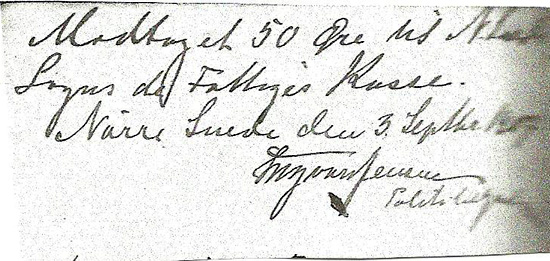 Modtaget 50 Øre til
Sogns de Fattiges Kasse.
Nørre Snede den 3. Septbr
Jensen